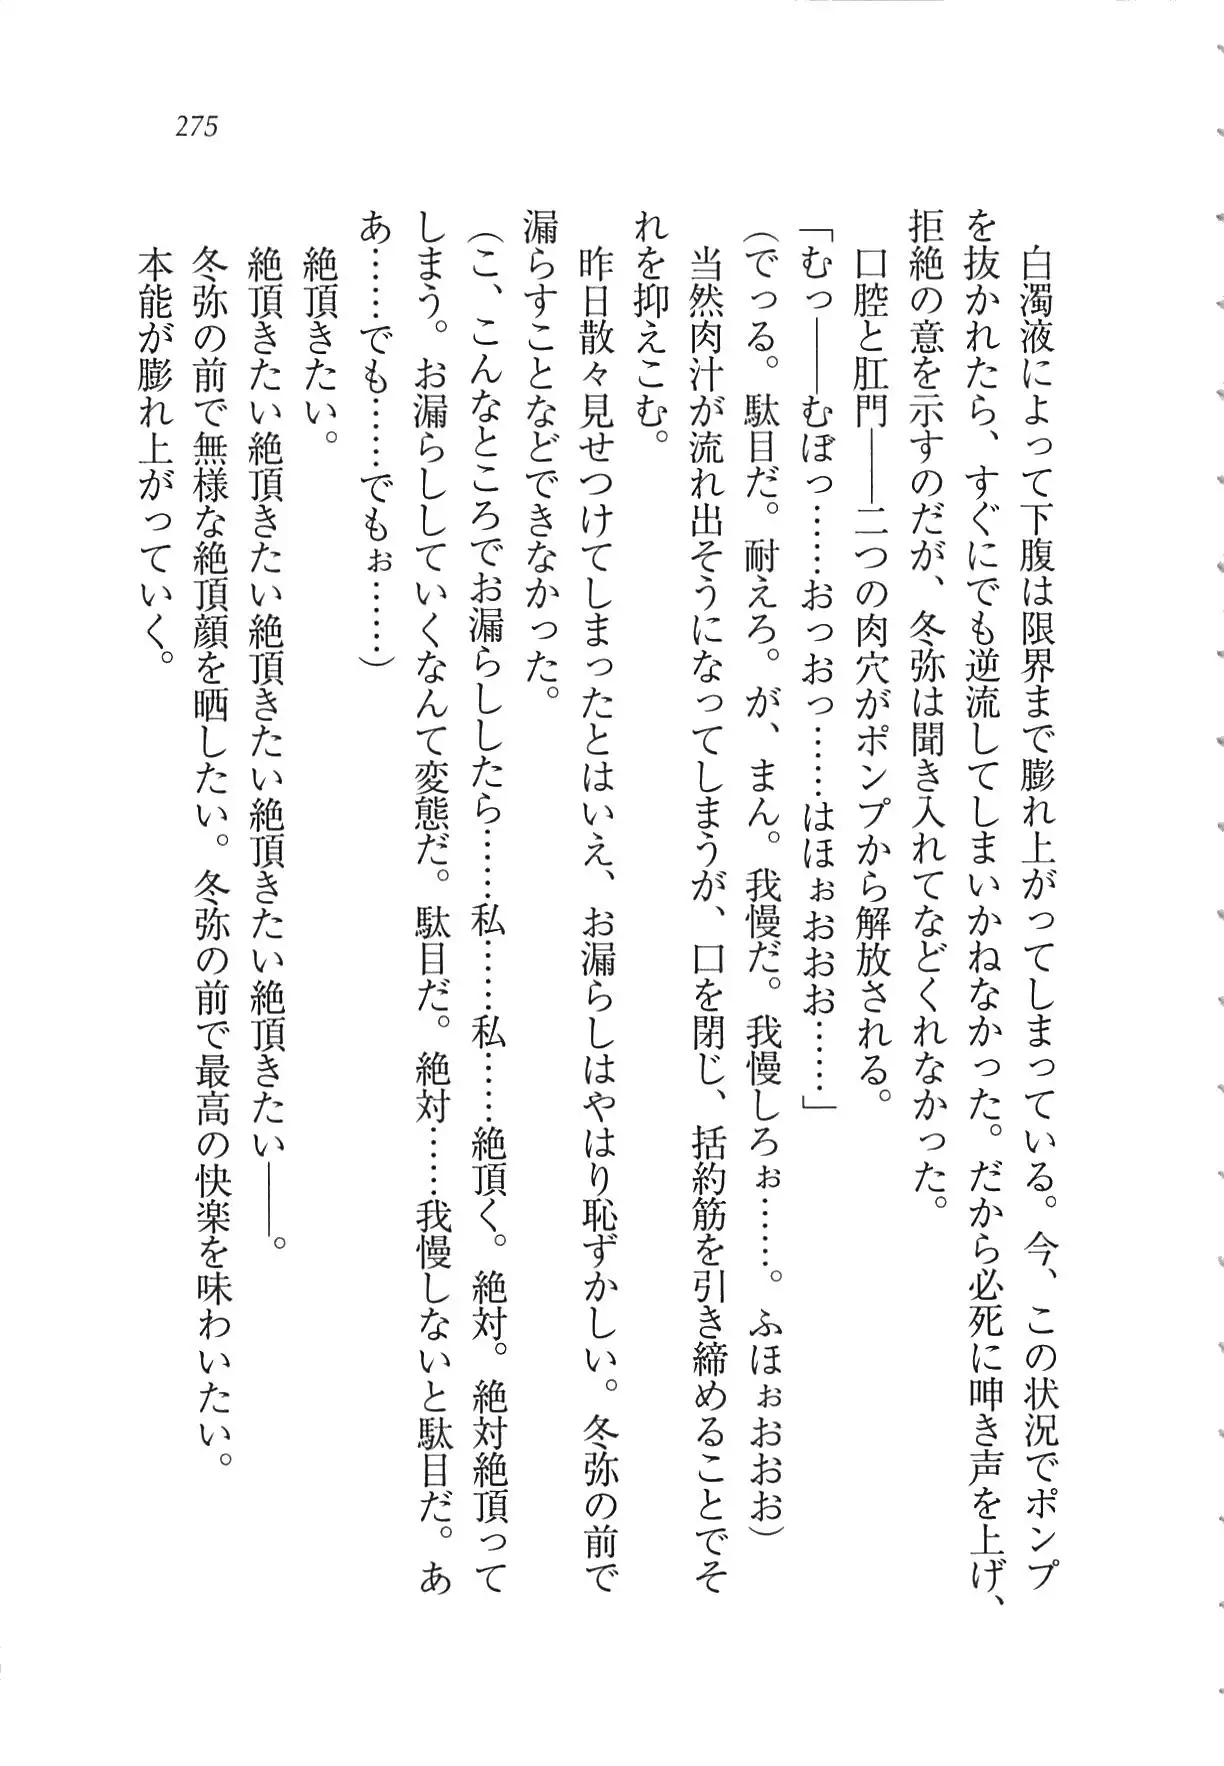 275
白濁液によって下腹は限界まで膨れ上がってしまっている。今、この状況でポンプ
を抜かれたら、すぐにでも逆流してしまいかねなかった。だから必死に呻き声を上げ、
拒絶の意を示すのだが、冬弥は聞き入れてなどくれなかった。
口腔と肛門――二つの肉穴がポンプから解放される。
「むっ――むぼっ……おっおっ……はほぉおおお……」
(でっる。駄目だ。耐えろ。が、まん。我慢だ。我慢しろぉ……。ふほぉおおお)
当然肉汁が流れ出そうになってしまうが、口を閉じ、括約筋を引き締めることでそ
れを抑えこむ。
昨日散々見せつけてしまったとはいえ、お漏らしはやはり恥ずかしい。冬弥の前で
漏らすことなどできなかった。
(こ、こんなところでお漏らししたら……私……私……絶頂く。絶対。絶対絶頂って
しまう。お漏らししていくなんて変態だ。駄目だ。絶対……我慢しないと駄目だ。あ
あ……でも……でもぉ……)
絶頂きたい。
絶頂きたい絶頂きたい絶頂きたい絶頂きたい絶頂きたい――。
冬弥の前で無様な絶頂顔を晒したい。冬弥の前で最高の快楽を味わいたい。
本能が膨れ上がっていく。